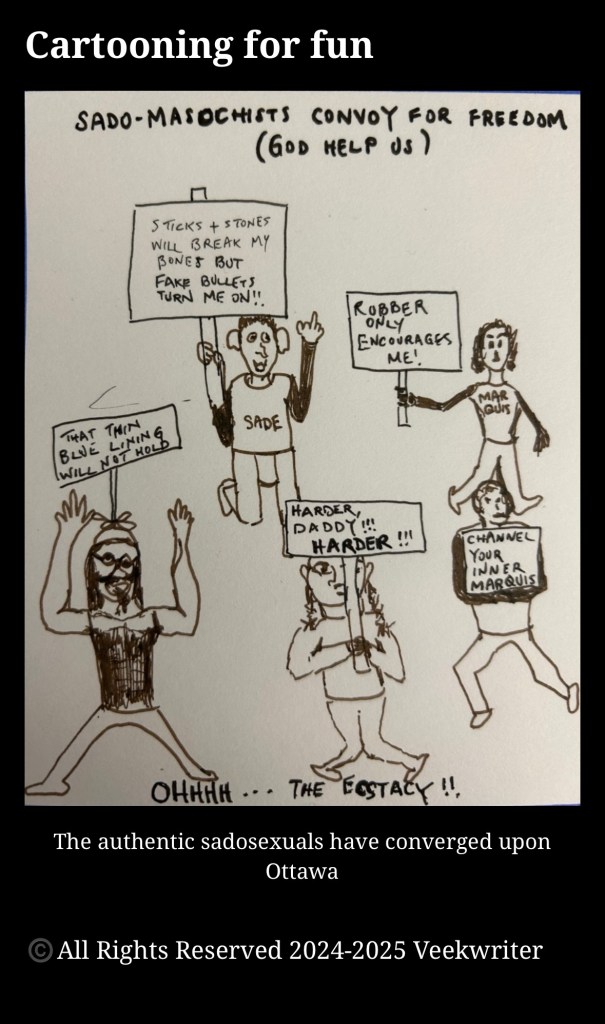 Cartooning for fun
SADO-MASOCHISTS CONVOY FOR FREEDOM
(GOD HELP US)
STICKS + STONES
WILL BREAK MY
BONES BUT
FAKE BULLETS
TURN ME ON!!
RUBBER
ONLY
ENCOURAGES
ME!
MAR
QUIS
SADE
THAT THIN
BLUE LINING
WILL NOT HOLD
HARDER,
DADDY!!!
HARDER!!!
CHANNEL
YOUR
INNER
MARQUIS
OHHHH... THE ECSTACY!!
The authentic sadosexuals have converged upon
Ottawa
© All Rights Reserved 2024-2025 Veekwriter